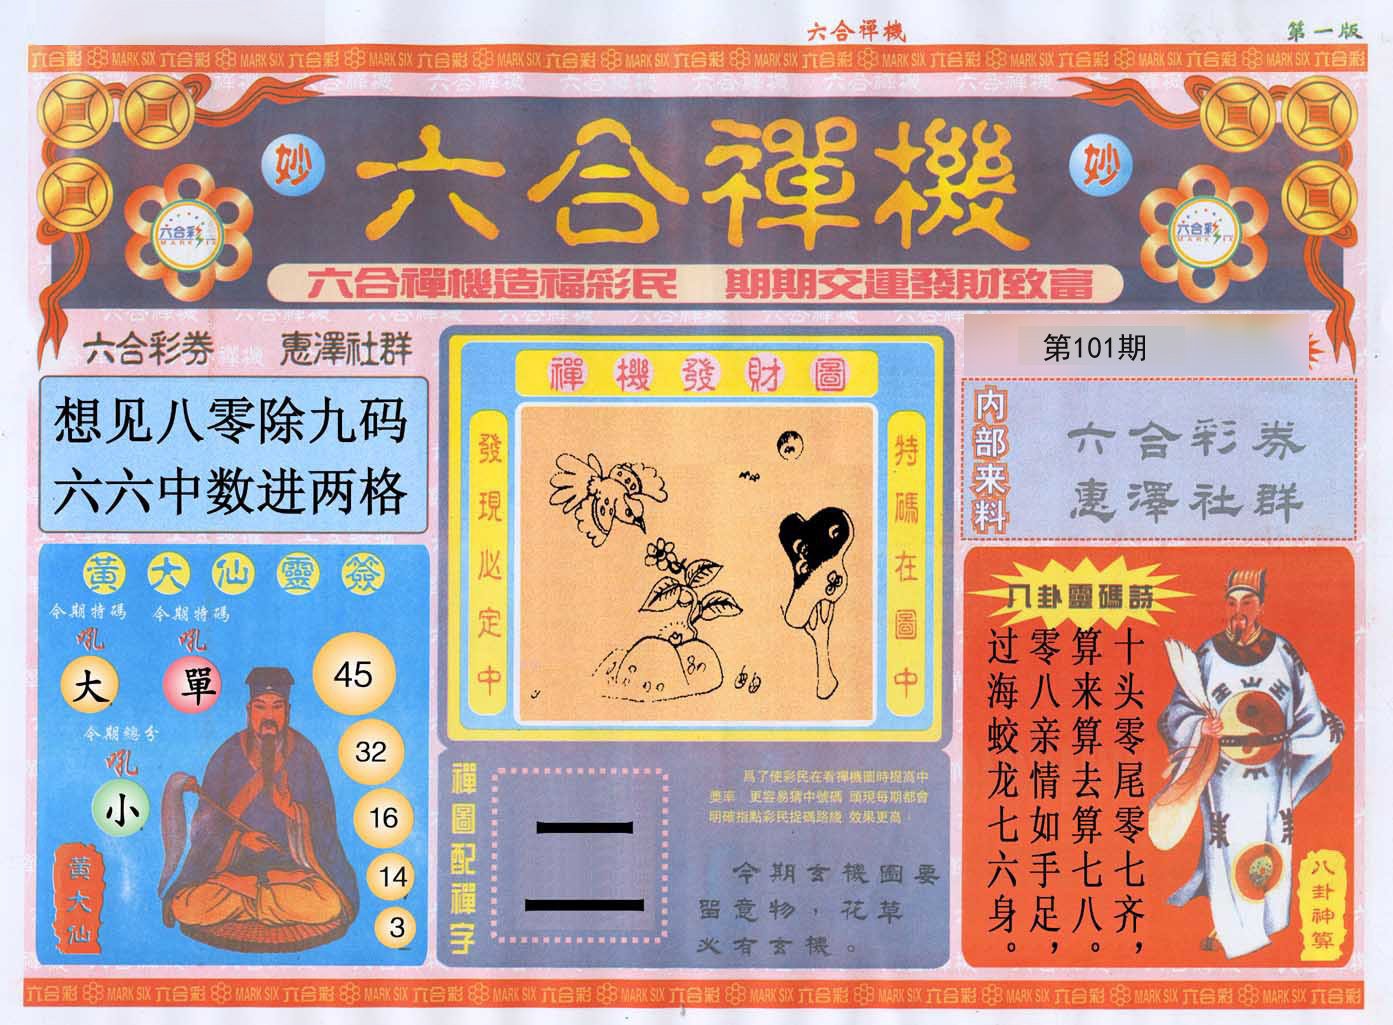 六合禪機
第一版
六合彩 MARK SIX 六合彩 MARK SIX 六合彩 MARK SIX 六合彩 MARK SIX 六合彩 MARK SIX 六合彩 MARK SIX 六合彩 MARK SIX 六合彩 MARK SIX 六合彩 MARK SIX 六合彩 MARK SIX 六合彩
妙
六合禪機
妙
六合彩
MARK SIX
六合彩
MARK SIX
六合禪機造福彩民 期期交運發財致富
六合彩券 惠澤社群
想见八零除九码
六六中数进两格
黃大仙靈簽
今期特碼
吼
大
今期特碼
吼
單
今期總分
吼
小
45
32
16
14
3
黃大仙
禪機發財圖
發現必定中
特碼在圖中
禪圖配禪字
二
爲了使彩民在看禪機圖時提高中
獎率 更容易猜中號碼 頭現每期都會
明確指點彩民捉碼路綫 效果更高
今期玄機圖要
留意物，花草
必有玄機。
第101期
内部来料
六合彩券
惠澤社群
八卦靈碼詩
十头零尾零七齐，
算来算去算七八。
零八亲情如手足，
过海蛟龙七六身。
八卦神算
六合彩 MARK SIX 六合彩 MARK SIX 六合彩 MARK SIX 六合彩 MARK SIX 六合彩 MARK SIX 六合彩 MARK SIX 六合彩 MARK SIX 六合彩 MARK SIX 六合彩 MARK SIX 六合彩 MARK SIX 六合彩